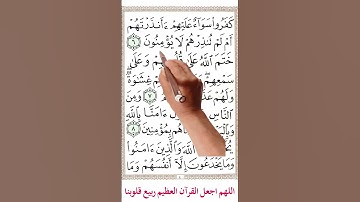 كَفَرُوا۟ سَوَآءٌ عَلَيْهِمْ ءَأَنذَرْتَهُمْ
أَمْ لَمْ تُنذِرْهُمْ لَا يُؤْمِنُونَ ٦
خَتَمَ ٱللَّهُ عَلَىٰ وَعَلَىٰ
سَمْعِهِمْ غِشَـٰوَةٌ
وَلَهُمْ ٧ وَمِنَ
ٱلنَّاسِ ءَامَنَّا بِٱللَّهِ
هُم بِمُؤْمِنِينَ ٨
ٱللَّهَ وَٱلَّذِينَ ءَامَنُوا۟
وَمَا يَخْدَعُونَ إِلَّآ أَنفُسَهُمْ وَمَا
اللهم اجعل القرآن العظيم ربيع قلوبنا